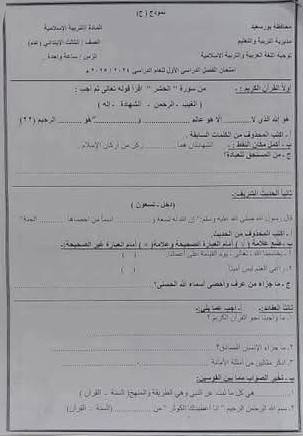 نموذج (ج)
محافظة بورسعيد
المادة/ التربية الإسلامية
مديرية التربية والتعليم
الصف / الثالث الابتدائي (عام)
توجيه اللغة العربية والتربية الإسلامية
الزمن / ساعة واحدة
امتحان الفصل الدراسي الأول للعام الدراسي ٢٠٢٤ / ٢٠٢٥ م
أولاً القرآن الكريم:-
من سورة " الحشر " اقرأ قوله تعالى ثم أجب :
( الغيب - الرحمن - الشهادة - إله )
هو الله الذي لا ......... إلا هو عالم ......... و ......... هو ......... الرحيم (٢٢)
أ - اكتب المحذوف من الكلمات السابقة .
ب - أكمل مكان النقط :- الشهادتان هما ......... ركن من أركان الإسلام.
ج - من المستحق للعبادة؟
ثانياً الحديث الشريف:-
(دخل - تسعون )
قال رسول الله صلى الله عليه وسلم:" إن لله تسعة و ......... اسماً من أحصاها ......... الجنة"
أ - اكتب المحذوف من الحديث.
ب - ضع علامة ( √ ) أمام العبارة الصحيحة وعلامة ( × ) أمام العبارة غير الصحيحة:-
١ - يحاسبنا الله - تعالى - يوم القيامة على أعمالنا. ( )
٢ - راعي الغنم ليس أمينا ( )
ج - ما جزاء من عرف وأحصى أسماء الله الحسنى؟
ثالثاً العقائد:- أ - أجب عما يلي:-
١ - ما واجبنا نحو القرآن الكريم ؟
٢ - ما جزاء الإنسان الصادق؟
٣ - اذكر مثالين من أمثلة الأمانة
ب - تخير الصواب مما بين القوسين:
١ - ......... هي كل ما ثبت عن النبي وهي الطريقة والمنهج( السنة - القرآن )
٢ - بسم الله الرحمن الرحيم " إنا أعطيناك الكوثر " من ......... (السنة - القرآن)